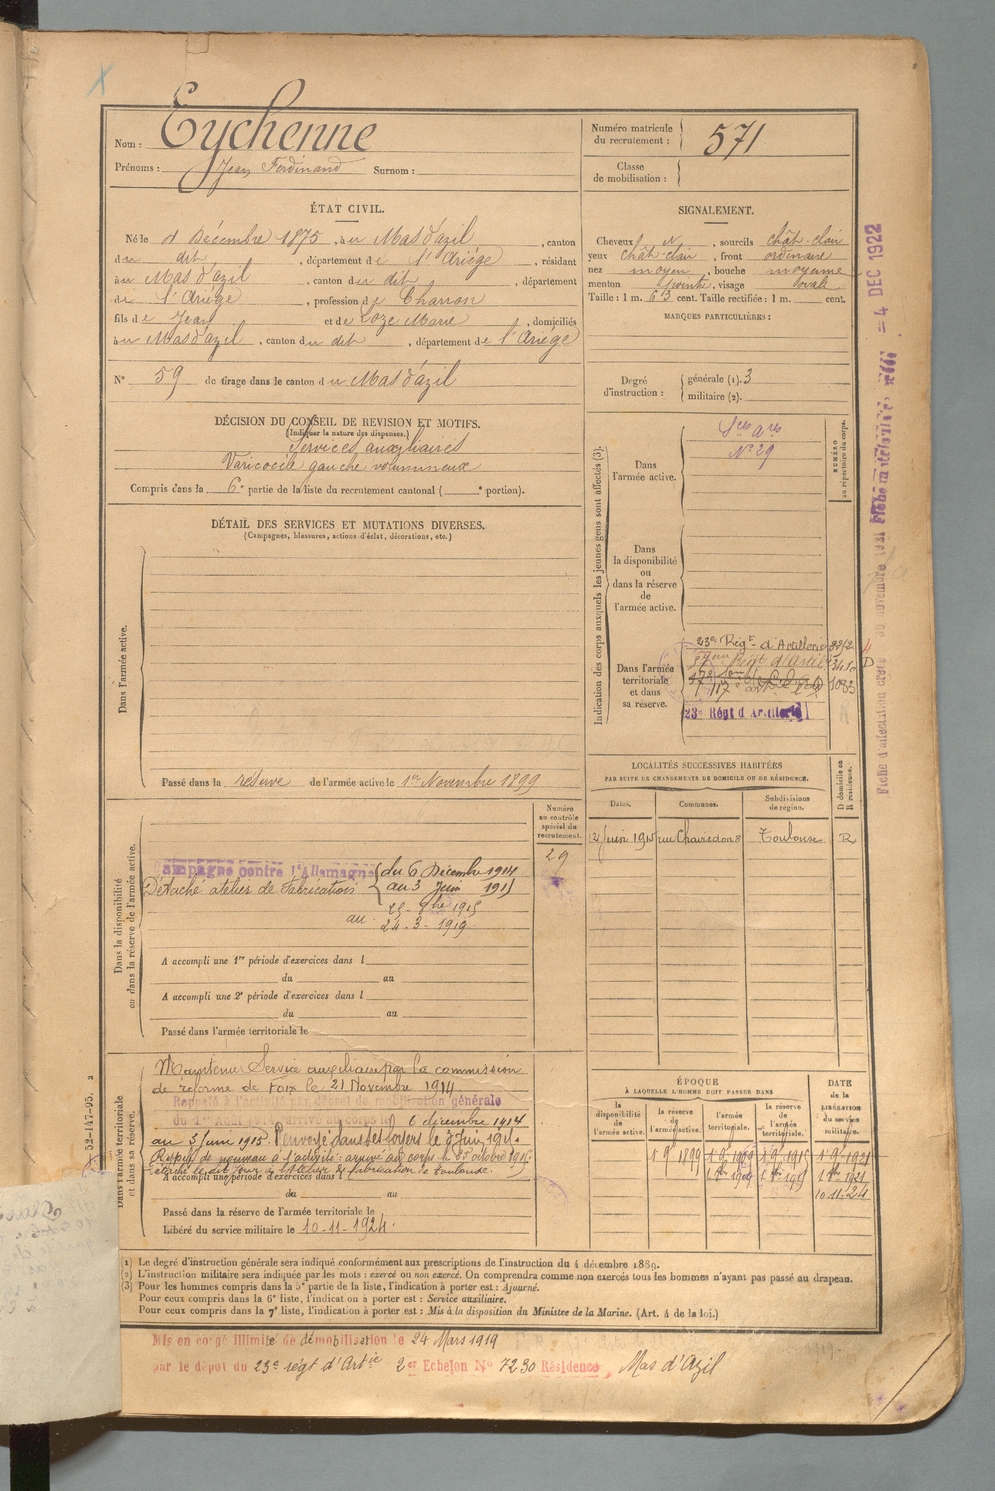 Nom : Eychenne
Prénoms : Jean Ferdinand Surnom :
Numéro matricule
du recrutement : 571
Classe
de mobilisation :
ÉTAT CIVIL.
Né le 1 Décembre 1875, à u Mas d'azil, canton
du dit, département de l'Ariège, résidant
à u Mas d'azil, canton du dit, département
de l'Ariège, profession de Charron
fils de Jean et de Loze Marie, domiciliés
à u Mas d'azil, canton du dit, département de l'Ariége
N° 59 de tirage dans le canton du Mas d'azil
SIGNALEMENT.
Cheveux et, sourcils chât-clair
yeux chât-clair, front ordinaire
nez moyen, bouche moyenne
menton pointu, visage ovale
Taille : 1 m. 63 cent. Taille rectifiée : 1 m. cent.
MARQUES PARTICULIÈRES :
Degré
d'instruction :
générale (1). 3
militaire (2).
DÉCISION DU CONSEIL DE REVISION ET MOTIFS.
(Indiquer la nature des dispenses.)
Services auxiliaires
Varicocèle gauche volumineux
Compris dans la 6e partie de la liste du recrutement cantonal ( e portion).
DÉTAIL DES SERVICES ET MUTATIONS DIVERSES.
(Campagnes, blessures, actions d'éclat, décorations, etc.)
Dans l'armée active.
Passé dans la réserve de l'armée active le 1er Novembre 1899
Indication des corps auxquels les jeunes gens sont affectés (3).
NUMÉRO
au répertoire du corps.
Dans
l'armée active.
Ses Ares
N° 29
Dans
la disponibilité
ou
dans la réserve
de
l'armée active.
Dans l'armée
territoriale
et dans
sa réserve.
23e Régt d'Artillerie
Régt d'Artie
117e
23e Régt d'Artillerie
Fiche d'affectation
novembre
= 4 DEC 1922
LOCALITÉS SUCCESSIVES HABITÉES
PAR SUITE DE CHANGEMENTS DE DOMICILE OU DE RÉSIDENCE.
D domicile ou
R résidence.
Dates. Communes. Subdivisions
de région.
12 Juin 1915 rue Chairedon 8 Toulouse R
Numéro
au contrôle
spécial du
recrutement.
29
Dans la disponibilité
ou dans la réserve de l'armée active.
Campagne contre l'Allemagne du 6 Décembre 1914
au 3 Juin 1915
Détaché atelier de fabrication
25- 1915
au 24-3-1919
A accompli une 1re période d'exercices dans l
du au
A accompli une 2e période d'exercices dans l
du au
Passé dans l'armée territoriale le
52-147-95.
Dans l'armée territoriale
et dans sa réserve.
Maintenu Service auxiliaire par la commission
de réforme de Foix le 21 Novembre 1914
Rappelé à l'activité par décret de mobilisation générale
du 1er Août arrivé au corps le 6 décembre 1914
au 3 Juin 1915. Renvoyé dans ses foyers le 3 Juin 1915.
Rappelé de nouveau à l'activité: arrivé au corps le 25 octobre 1915
détaché le dit jour à l'Atelier de fabrication de Toulouse.
A accompli une période d'exercices dans l
du au
Passé dans la réserve de l'armée territoriale le
Libéré du service militaire le 10-11-1924.
ÉPOQUE
À LAQUELLE L'HOMME DOIT PASSER DANS
DATE
DE LA
LIBÉRATION
du service
militaire.
la
disponibilité
de
l'armée active.
la réserve
de
l'armée active.
l'armée
territoriale.
la réserve
de
l'armée
territoriale.
1 9e 1899 1 9e 1909 1 9e 1915 1 9e 1921
1909 1915 1921
10.11.24
(1) Le degré d'instruction générale sera indiqué conformément aux prescriptions de l'instruction du 4 décembre 1889.
(2) L'instruction militaire sera indiquée par les mots : exercé ou non exercé. On comprendra comme non exercés tous les hommes n'ayant pas passé au drapeau.
(3) Pour les hommes compris dans la 5e partie de la liste, l'indication à porter est : Ajourné.
Pour ceux compris dans la 6e liste, l'indication à porter est : Service auxiliaire.
Pour ceux compris dans la 7e liste, l'indication à porter est : Mis à la disposition du Ministre de la Marine. (Art. 4 de la loi.)
Mis en congé illimité de démobilisation le 24 Mars 1919
par le dépôt du 23e régt d'Artie 2er Echelon N° 7230 Résidence Mas d'Azil